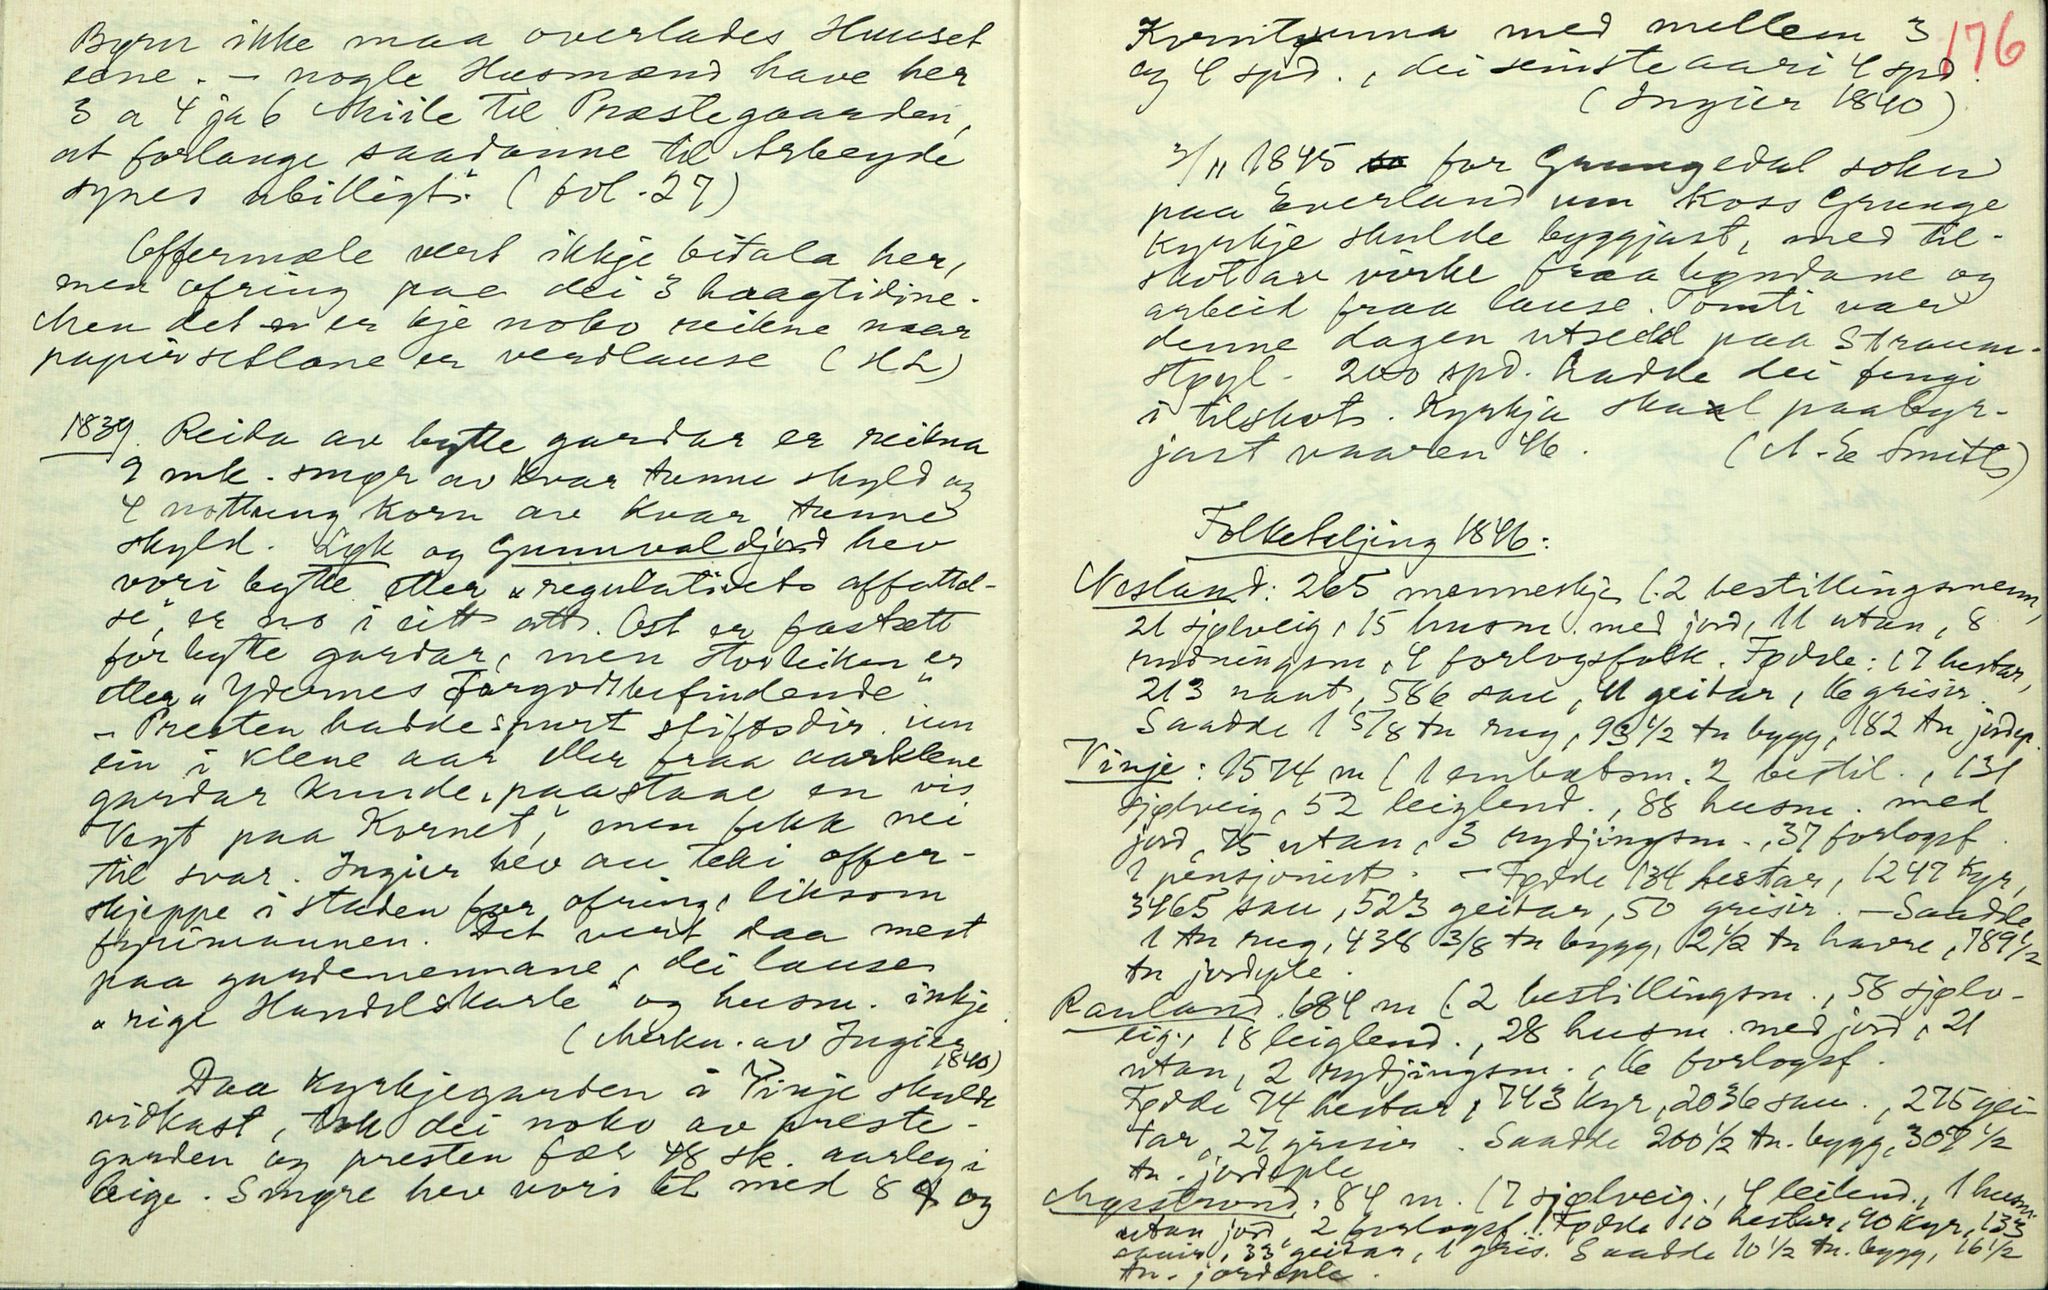 Byrn ikke maa overlades Huuset
ene. - nogle Husmænd have her
3 a 4 ja 6 Miile til Præstegaarden,
at forlange saadanne til Arbeyde
synes ubilligt". (fol. 27)
Offermæle vert ikkje bitala her,
men ofring paa dei 3 høgtidine.
Men det er kje noko reikne naar
papirsetlane er verdlause (H L)
1839. Reida av bytte gardar er reikna
9 mk. smør av kvar tunne skyld og
4 nottung korn av kvar tunne
skyld. Lyk og Gunnvaldjord hev
vori bytte etter "regulativets affattel-
se", er no i eitt att. Ost er fastsett
for bytte gardar, men
etter "Ydernes Forgodtbefindende"
- Presten hadde spurt stiftsdir. um
ein i klene aar eller fraa aarklene
gardar kunde "paastaae en vis
Vegt paa Kornet", men fekk nei
til svar. Ingier hev au teki offer-
skjeppe i staden for ofring, liksom
fyrimannen. Det vert daa mest
paa gardemennane, dei lause
"rige Handelskarle" og husm. inkje.
(Merkn. av Ingier
1840)
Daa kyrkjegarden i Vinje skulde
vidkast, tok dei noko av preste-
garden og presten fær 48 sk. aarleg i
leige. Smøre hev vori til med 8 og
Korntunna med mellem 3 176
og 4 spd., dei seinste aari 4 spd.
(Ingier 1840)
2/11 1845 for Grungedal sokn
paa Everland um Koss Grunge
kyrkje skulde byggjast, med til-
skot av virke fraa bøndane og
arbeid fraa lause. Tomti var
denne dagen utsedd paa Straum-
støyl. 200 spd. hadde dei fengi
i tilskot. Kyrkja skal paabyr-
jast vaaren 46. (N. E Smith)
Folketeljing 1846:
Nesland: 265 menneskje (2 bestillingsmenn,
21 sjølveig, 15 husm. med jord, 11 utan, 8
rudningsm, 4 forlogsfolk. Fødde: 17 hestar,
213 naut, 586 sau, 11 geitar, 16 grisir.
Saadde 1 5/8 tn rug, 93 1/2 tn bygg, 182 tn jordep.
Vinje: 1574 m (1 embætsm. 2 bestil., 131
sjølveig, 52 leiglend., 88 husm. med
jord, 75 utan, 3 rydjingsm., 37 forlogsf.
1 pensjonist. - Fødde 134 hestar, 1247 kyr,
3465 sau, 523 geitar, 50 grisir. - Saadde
1 tn rug, 438 3/8 tn bygg, 2 1/2 tn havre, 789 1/2
tn jordeple.
Rauland. 684 m (2 bestillingsm., 58 sjølv-
eig., 18 leiglend., 28 husm. med jord, 21
utan, 2 rydjingsm., 16 forlogsf.
Fødde 74 hestar, 743 kyr, 2036 sau., 275 gei-
tar, 27 grisir. Saadde 200 1/2 tn. bygg, 307 1/2
tn. jordeple
Møsstrond. 84 m. (7 sjølveig., 4 leilend., 1 husm.
utan jord, 2 forlogsf. Fødde 10 hestar, 90 kyr, 133
sauir, 33 geitar, 1 gris. Saadde 10 1/2 tn. bygg, 16 1/2
tn. jordeple.